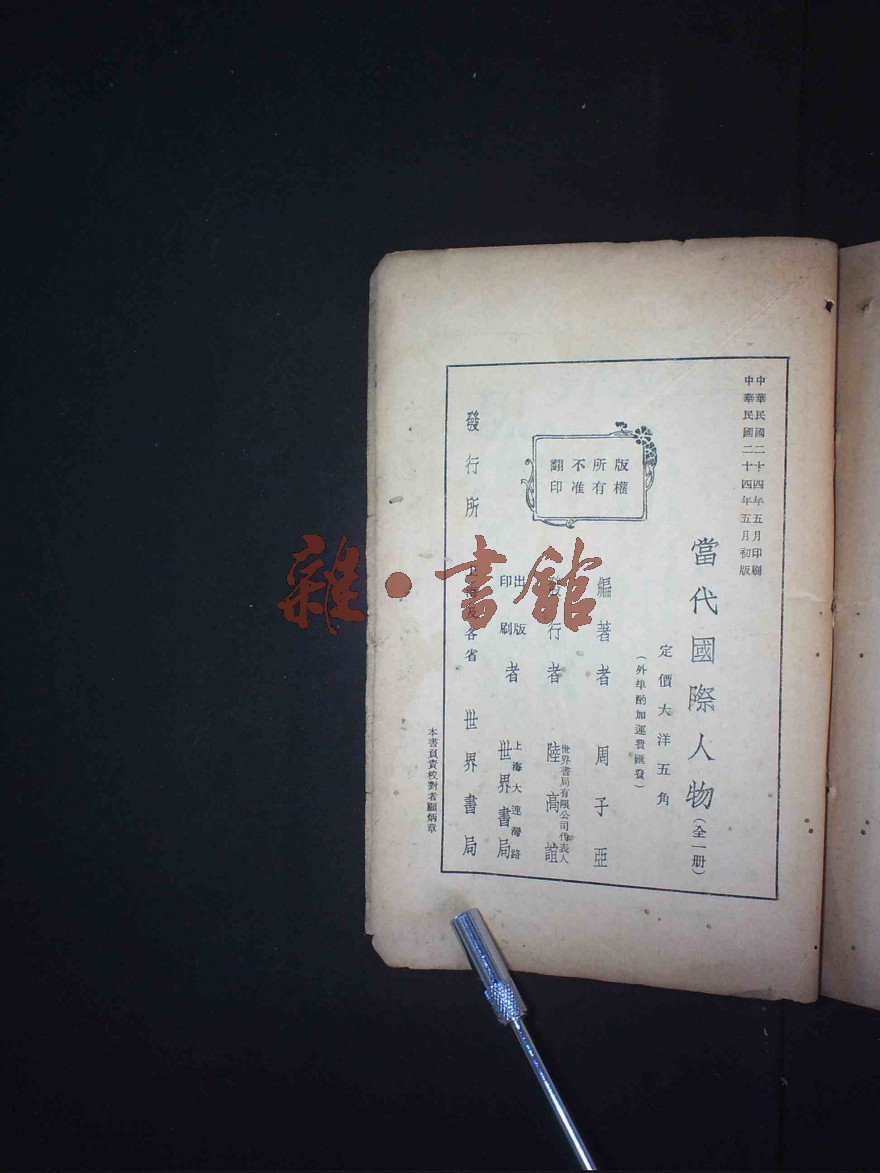 中華民國二十四年五月印刷
中華民國二十四年五月初版
當代國際人物(全一册)
定價大洋五角
(外埠酌加運費匯費)
版權
所有
不准
翻印
編著者 周子亞
發行者 世界書局有限公司代表人 陸高誼
出版印刷者 上海大連灣路 世界書局
發行所 上海及各省 世界書局
本書負責校對者顧炳章
雜·書館